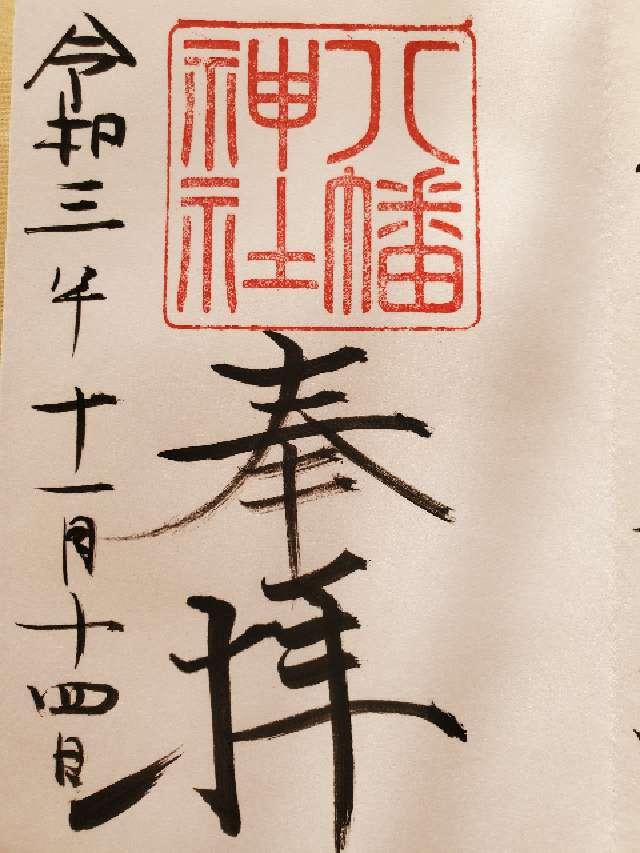 八幡
神社
奉拝
令和三年十一月十四日